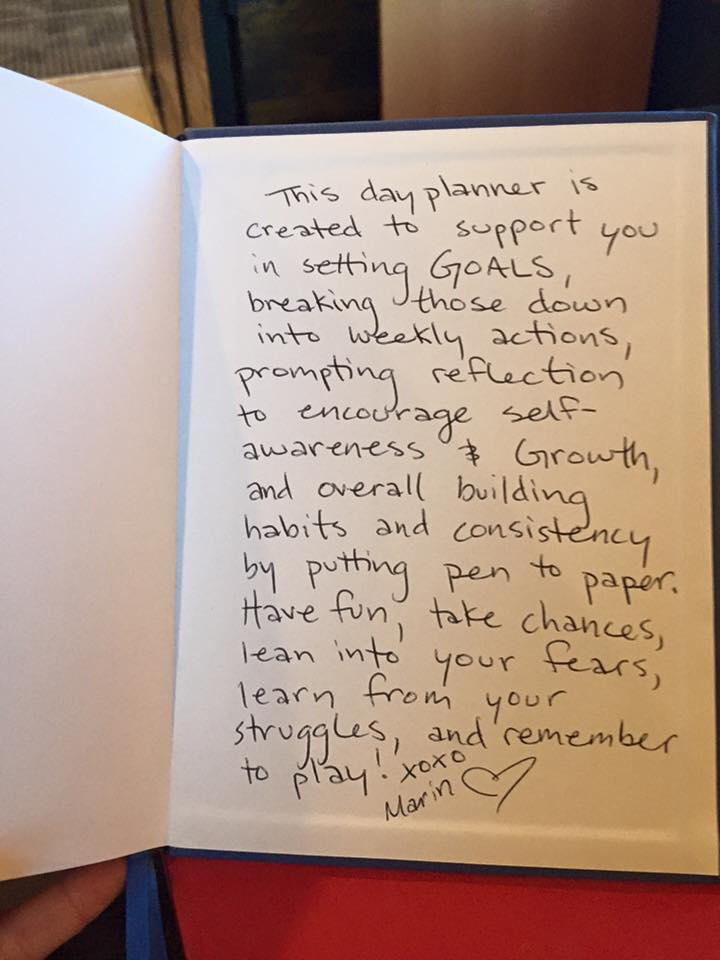 This day planner is
created to support you
in setting GOALS,
breaking those down
into weekly actions,
prompting reflection
to encourage self-
awareness & Growth,
and overall building
habits and consistency
by putting pen to paper.
Have fun, take chances,
lean into your fears,
learn from your
struggles, and remember
to play! xoxo
Marin